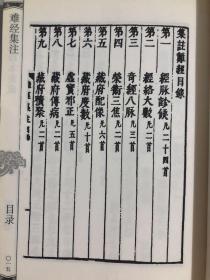 集註難經目錄
第一 經脉診候凡二十四首
第二 經絡大數凡二首
第三 奇經八脉凡三首
第四 榮衛三焦凡二首
第五 藏府配像凡六首
第六 藏府度數凡十首
第七 虛實邪正凡五首
第八 藏府傳病凡二首
第九 藏府積聚凡二首
难经集注
目录
〇一五